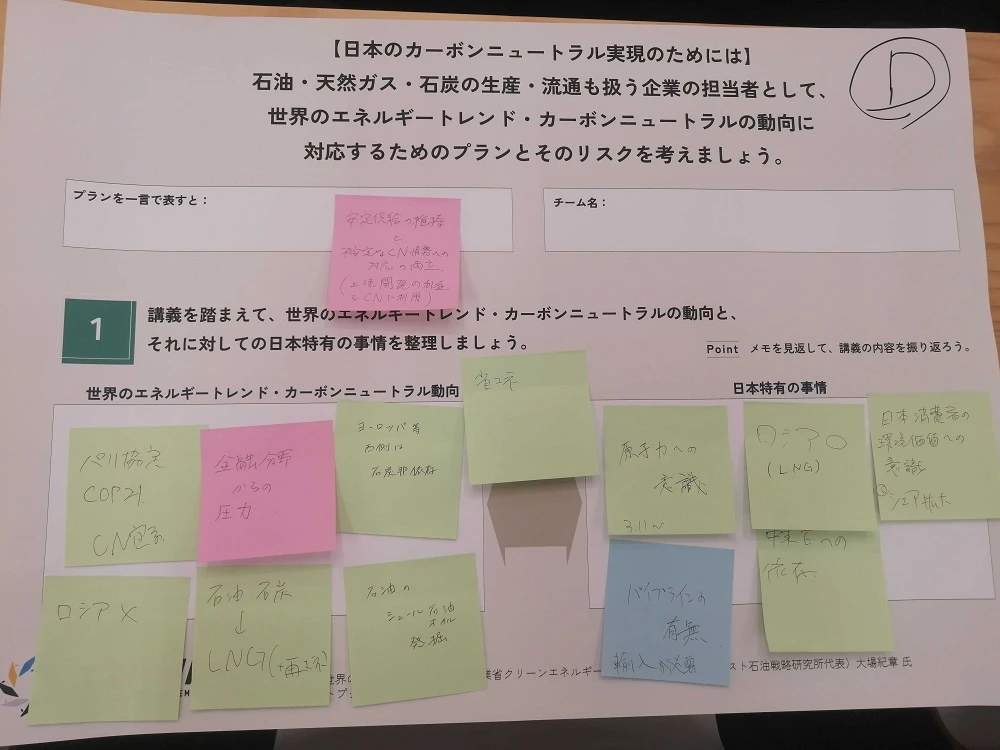 【日本のカーボンニュートラル実現のためには】
D
石油・天然ガス・石炭の生産・流通も扱う企業の担当者として、
世界のエネルギートレンド・カーボンニュートラルの動向に
対応するためのプランとそのリスクを考えましょう。
プランを一言で表すと：
チーム名：
安定供給の維持
と
不安定なCN情勢への
対応の両立
(上流開発の
をCNに利用)
1
講義を踏まえて、世界のエネルギートレンド・カーボンニュートラルの動向と、
それに対しての日本特有の事情を整理しましょう。
Point メモを見返して、講義の内容を振り返ろう。
世界のエネルギートレンド・カーボンニュートラル動向
日本特有の事情
パリ協定
COP21
CN宣言
金融分野
からの
圧力
ヨーロッパ等
西側は
石炭非依存
省エネ
原子力への
意識
3.11〜
ロシア○
(LNG)
日本消費者の
環境価値への
意識
シェア拡大
ロシア×
石油 石炭
↓
LNG(+再エネ)
石油の
シェール石油
オイル
発掘
パイプラインの
有無
輸入が必要
中東への
依存
業省クリーンエネルギー
スト石油戦略研究所代表）大場紀章 氏